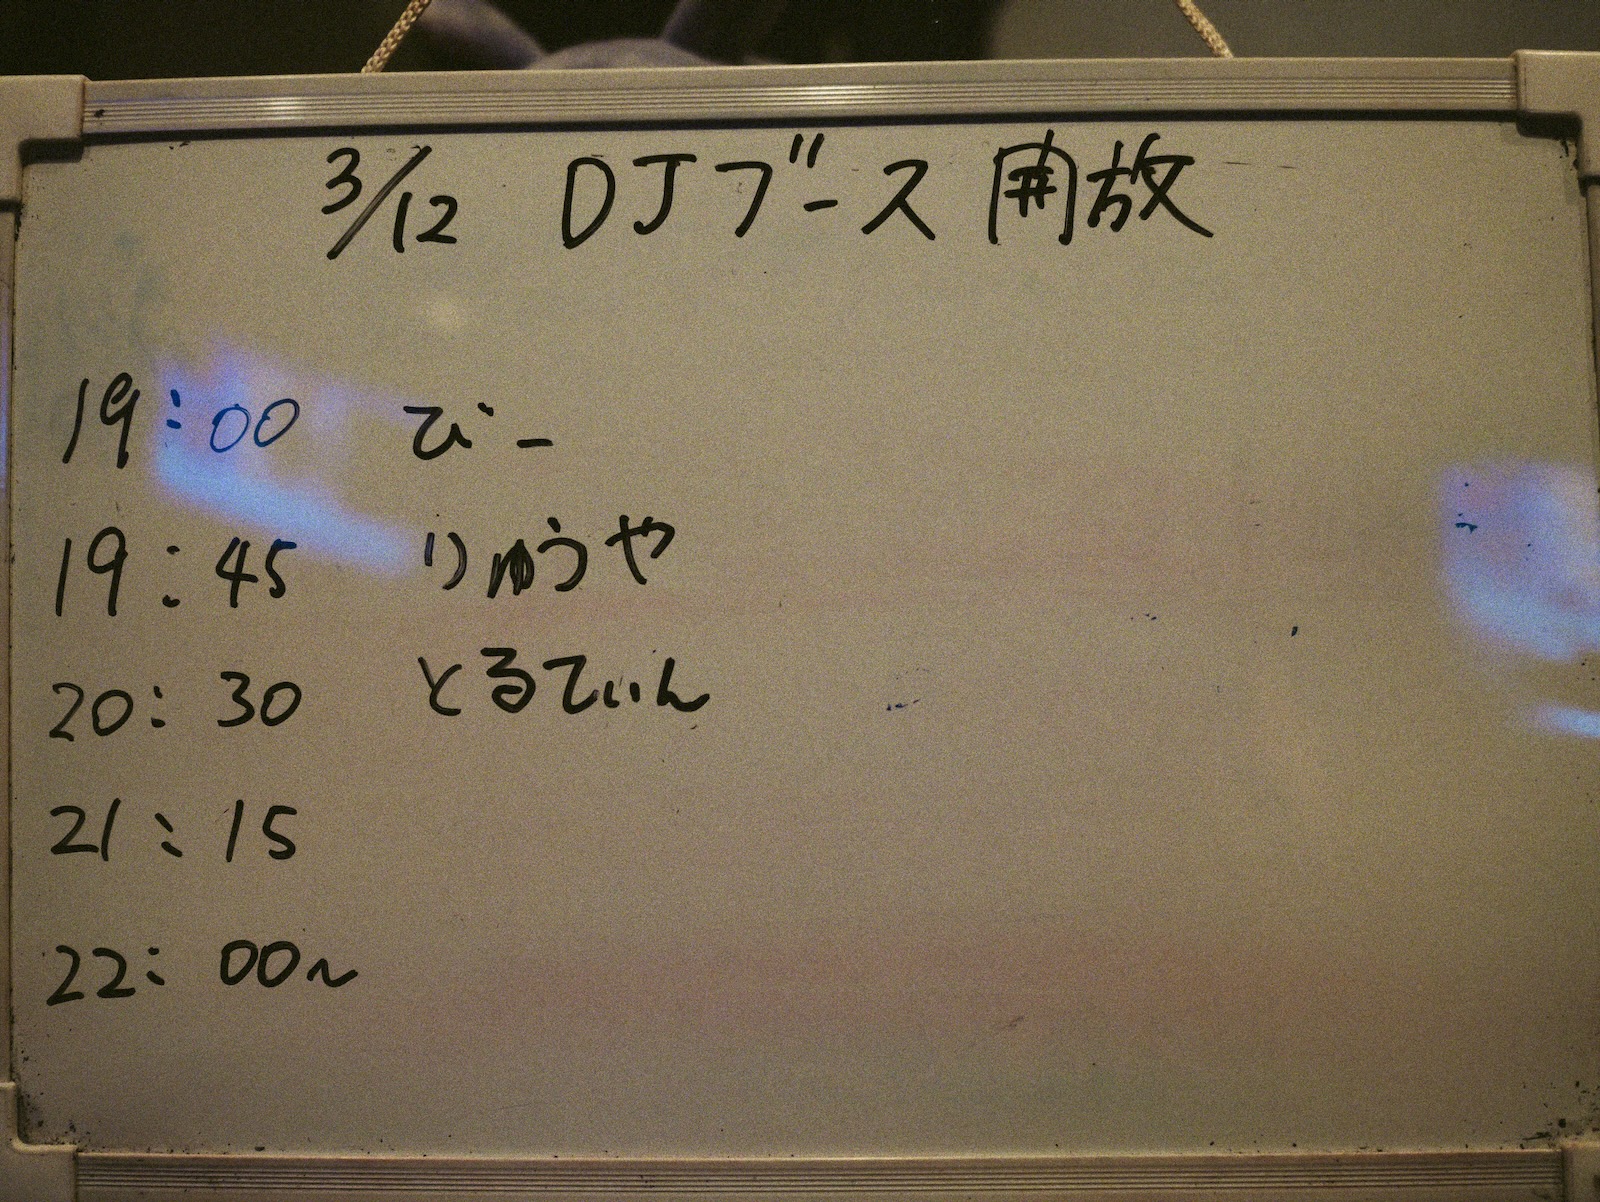 3/12 DJブース開放
19:00 びー
19:45 りゅうや
20:30 とるてぃん
21:15
22:00~